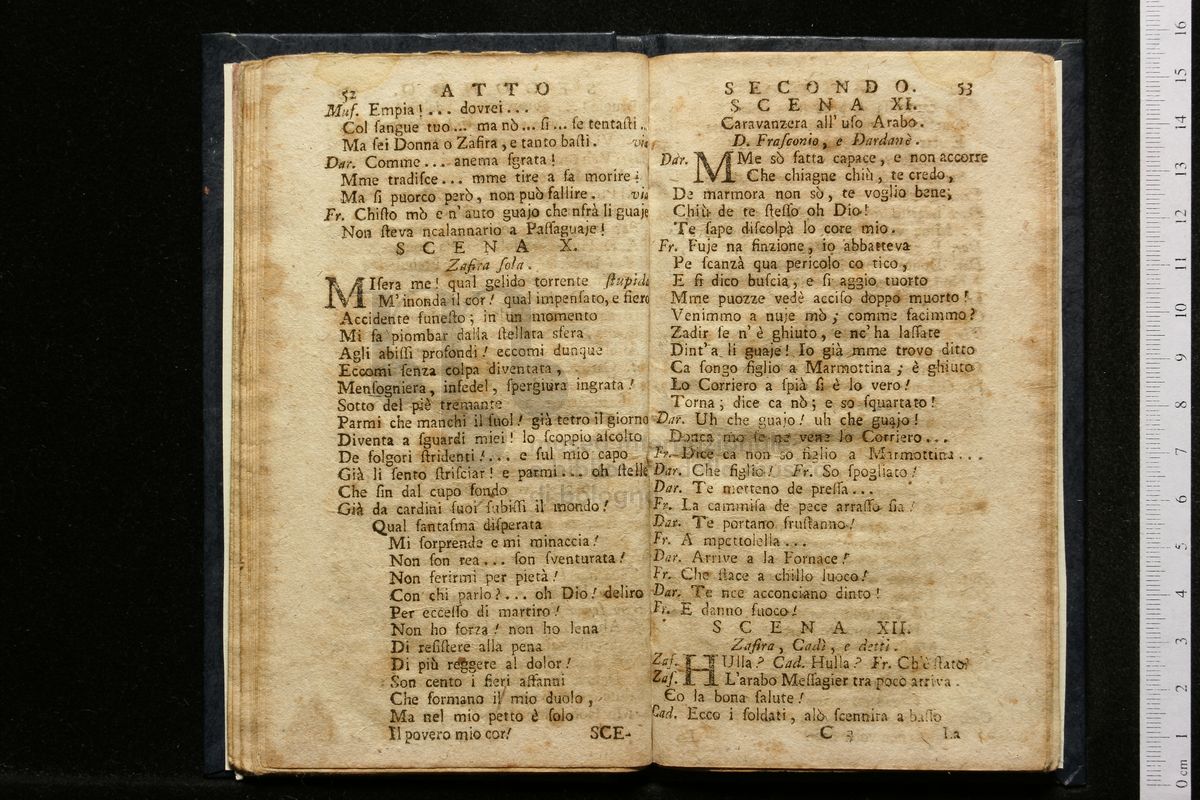 52 ATTO
Muſ. Empia!... dovrei...
Col ſangue tuo... ma nò... ſi... ſe tentaſti..
Ma ſei Donna o Zafira, e tanto baſti. via
Dar. Comme... anema ſgrata!
Mme tradiſce... mme tire a fa morire!
Ma ſi puorco però, non può fallire. via
Fr. Chiſto mò e n'auto guajo che nfrà li guaje
Non ſteva ncalannario a Paſſaguaje!
SCENA X.
Zafira ſola.
MIſera me! qual gelido torrente ſtupida
M'inonda il cor! qual impenſato, e fiero
Accidente funeſto; in un momento
Mi fa piombar dalla ſtellata sfera
Agli abiſſi profondi! eccomi dunque
Eccomi ſenza colpa diventata,
Menſogniera, infedel, ſpergiura ingrata!
Sotto del piè tremante
Parmi che manchi il ſuol! già tetro il giorno
Diventa a ſguardi miei! lo ſcoppio aſcolto
De folgori ſtridenti!... e ſul mio capo
Già li ſento ſtriſciar! e parmi... oh ſtelle
Che fin dal cupo fondo
Già da cardini ſuoi ſubiſſi il mondo!
Qual fantaſma diſperata
Mi ſorprende e mi minaccia!
Non ſon rea... ſon ſventurata!
Non ferirmi per pietà!
Con chi parlo?... oh Dio! deliro
Per ecceſſo di martiro!
Non ho forza! non ho lena
Di reſiſtere alla pena
Di più reggere al dolor!
Son cento i fieri affanni
Che formano il mio duolo,
Ma nel mio petto è ſolo
Il povero mio cor! SCE-
SECONDO. 53
SCENA XI.
Caravanzera all'uſo Arabo.
D. Fraſconio, e Dardanè.
Dar. MMe sò fatta capace, e non accorre
Che chiagne chiù, te credo,
De marmora non sò, te voglio bene;
Chiù de te ſteſſo oh Dio!
Te ſape diſcolpà lo core mio.
Fr. Fuje na finzione, io abbatteva
Pe ſcanzà qua pericolo co tico,
E ſi dico buſcia, e ſi aggio tuorto
Mme puozze vedè acciſo doppo muorto!
Venimmo a nuje mò; comme facimmo?
Zadir ſe n'è ghiuto, e nc'ha laſſate
Dint'a li guaje! Io già mme trovo ditto
Ca ſongo figlio a Marmottina; è ghiuto
Lo Corriero a ſpià ſi è lo vero!
Torna; dice ca nò; e so ſquartato!
Dar. Uh che guajo! uh che guajo!
Donca mo ſe ne vene lo Corriero...
Fr. Dice ca non so figlio a Marmottina...
Dar. Che figlio! Fr. So ſpogliato!
Dar. Te metteno de preſſa...
Fr. La cammiſa de pece arraſſo ſia!
Dar. Te portano fruſtanno!
Fr. A mpettolella...
Dar. Arrive a la Fornace!
Fr. Che ſtace a chillo luoco!
Dar. Te nce acconciano dinto!
Fr. E danno fuoco!
SCENA XII.
Zafira, Cadì, e detti.
Zaf. HUlla? Cad. Hulla? Fr. Ch'è ſtato?
Zaf. L'arabo Meſſagier tra poco arriva.
Co la bona ſalute!
Cad. Ecco i ſoldati, alò ſcennira a baſſo
C 3 La
16
15
14
13
12
11
10
9
8
7
6
5
4
3
2
1
0 cm